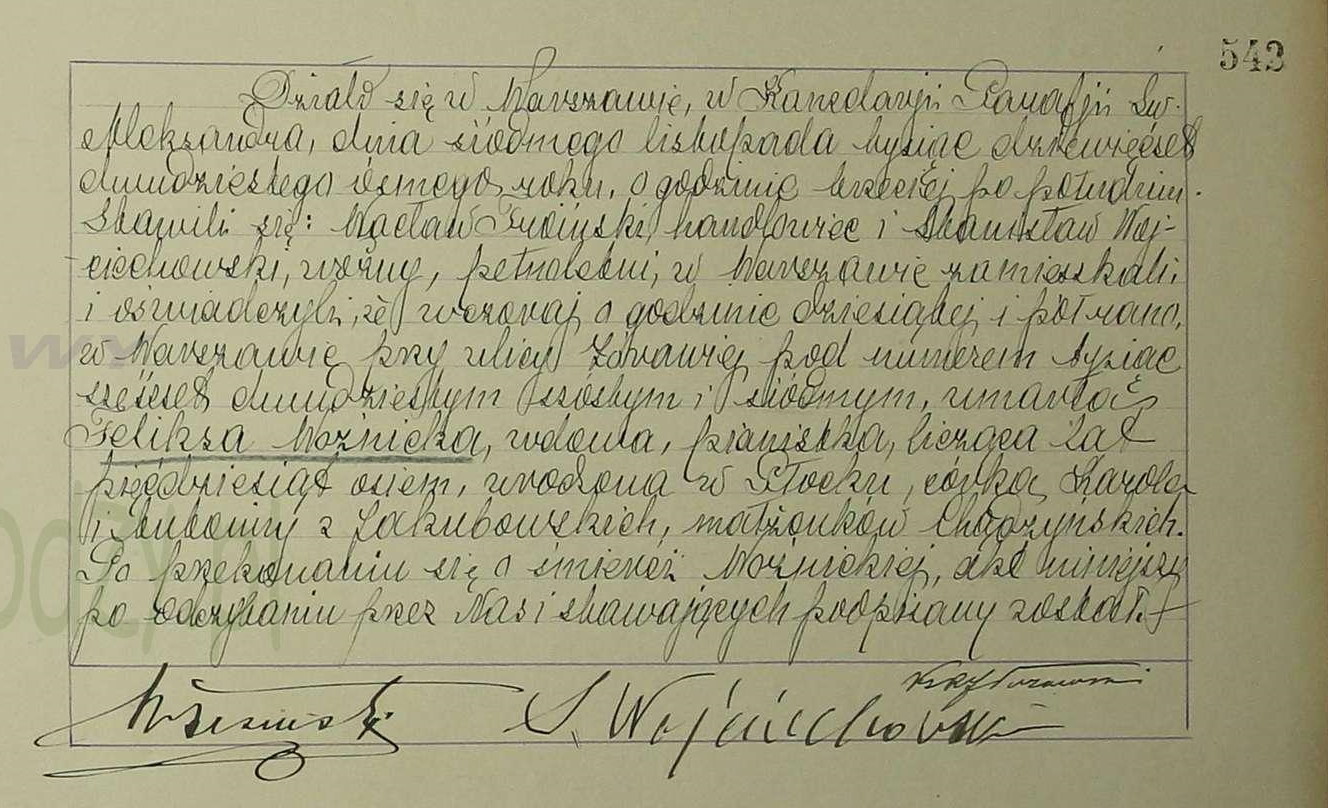 543
Działo się w Warszawie, w Kancelaryi Parafji Św.
Aleksandra, dnia siódmego listopada tysiąc dziewięćset
dwudziestego ósmego roku, o godzinie trzeciej po południu.
Stawili się: Wacław handlowiec i Stanisław Woj-
ciechowski, woźny, pełnoletni, w Warszawie zamieszkali
i oświadczyli, że wczoraj o godzinie dziesiątej i pół rano,
w Warszawie przy ulicy Żórawiej pod numerem tysiąc
sześćset dwudziestym szóstym i siódmym, umarła
Feliksa Woźnicka, wdowa, pianistka, licząca lat
pięćdziesiąt osiem, urodzona w Płocku, córka Karola
i Ludwiny z Jakubowskich, małżonków Chądzyńskich.
Po przekonaniu się o śmierci Woźnickiej, akt niniejszy
po odczytaniu przez Nas i stawających podpisany został.
S. Wojciechowski